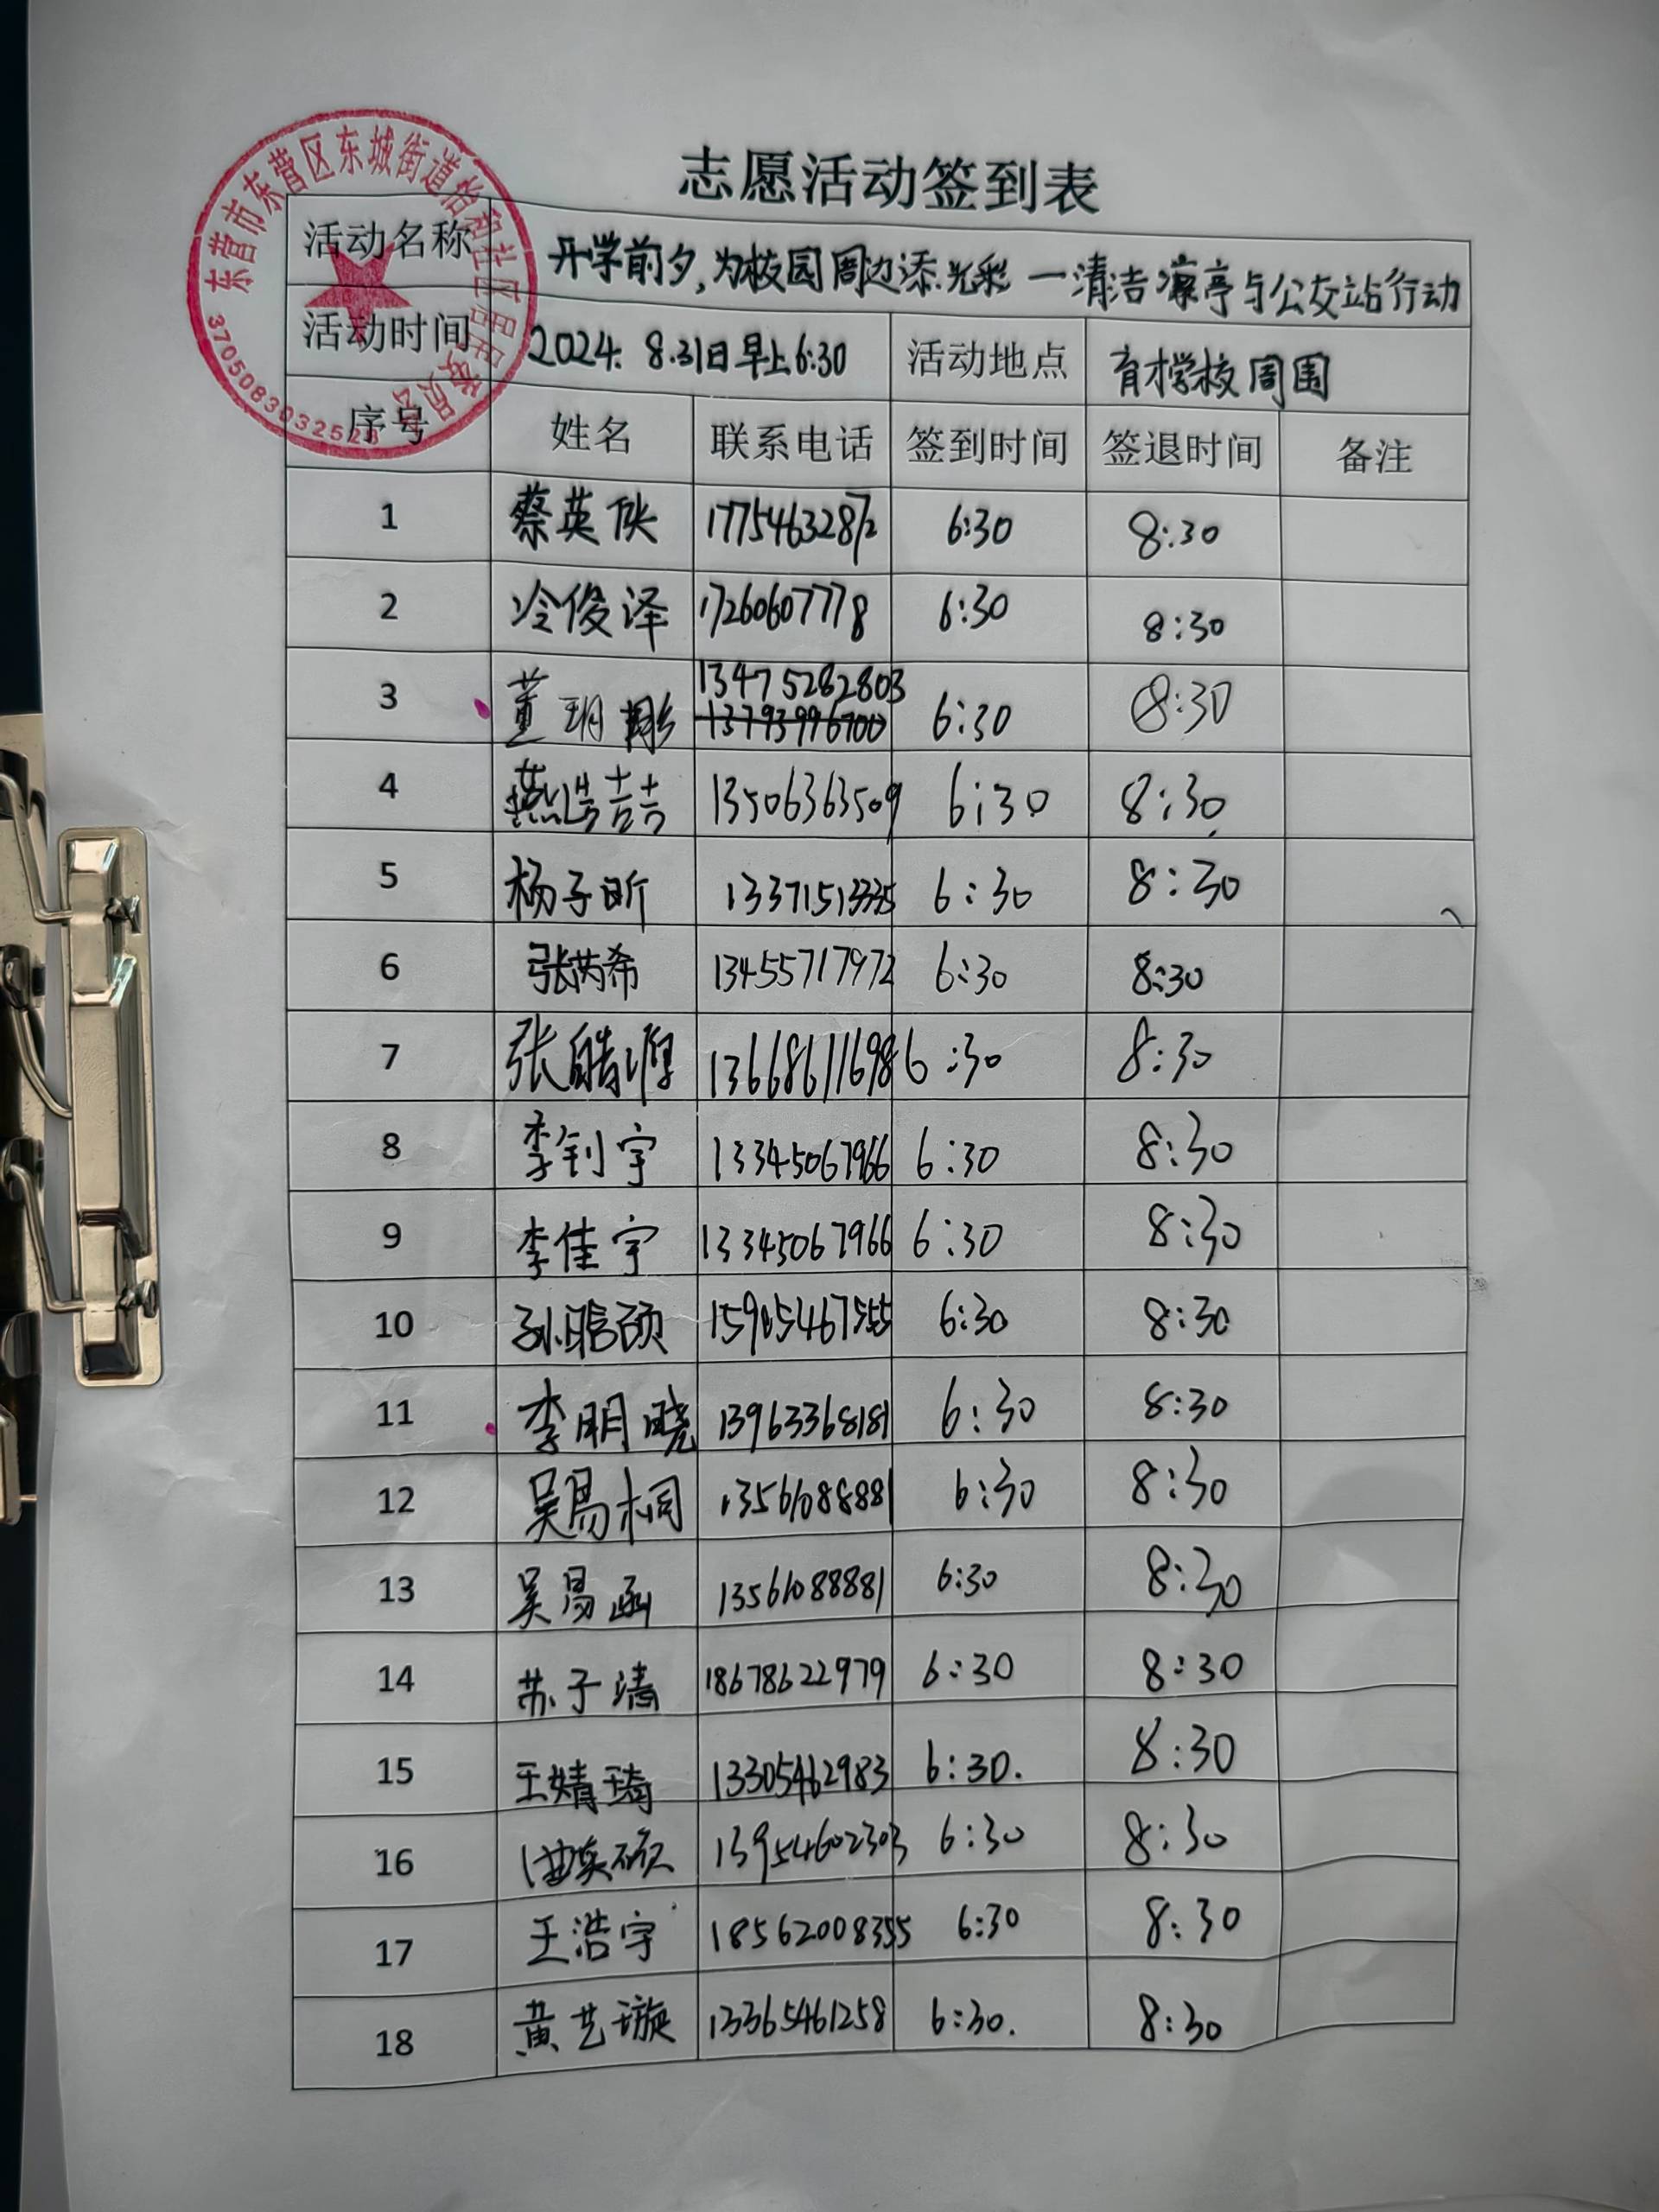 志愿活动签到表
东营市东营区东城街道怡和社区居民委员会
3705083032528
活动名称 开学前夕,为校园周边添光彩 一清洁凉亭与公交站行动
活动时间 2024. 8.31日早上6:30 活动地点 育才学校周围
序号 姓名 联系电话 签到时间 签退时间 备注
1 蔡英侠 17754632872 6:30 8:30
2 冷俊泽 17260607778 6:30 8:30
13475282803
3 董玥彤 13793996700 6:30 8:30
4 燕浩喆 13506363509 6:30 8:30
5 杨子昕 13371513335 6:30 8:30
6 张芮希 13455717972 6:30 8:30
7 张皓源 13668611698 6:30 8:30
8 李钊宇 13345067966 6:30 8:30
9 李佳宇 13345067966 6:30 8:30
10 孙晗硕 15905467555 6:30 8:30
11 李明晓 13963368181 6:30 8:30
12 吴易桐 13561088881 6:30 8:30
13 吴易函 13561088881 6:30 8:30
14 苏子清 18678622979 6:30 8:30
15 王婧琦 13305462983 6:30. 8:30
16 13954602303 6:30 8:30
17 王浩宇 18562008355 6:30 8:30
18 黄艺璇 13365461258 6:30. 8:30